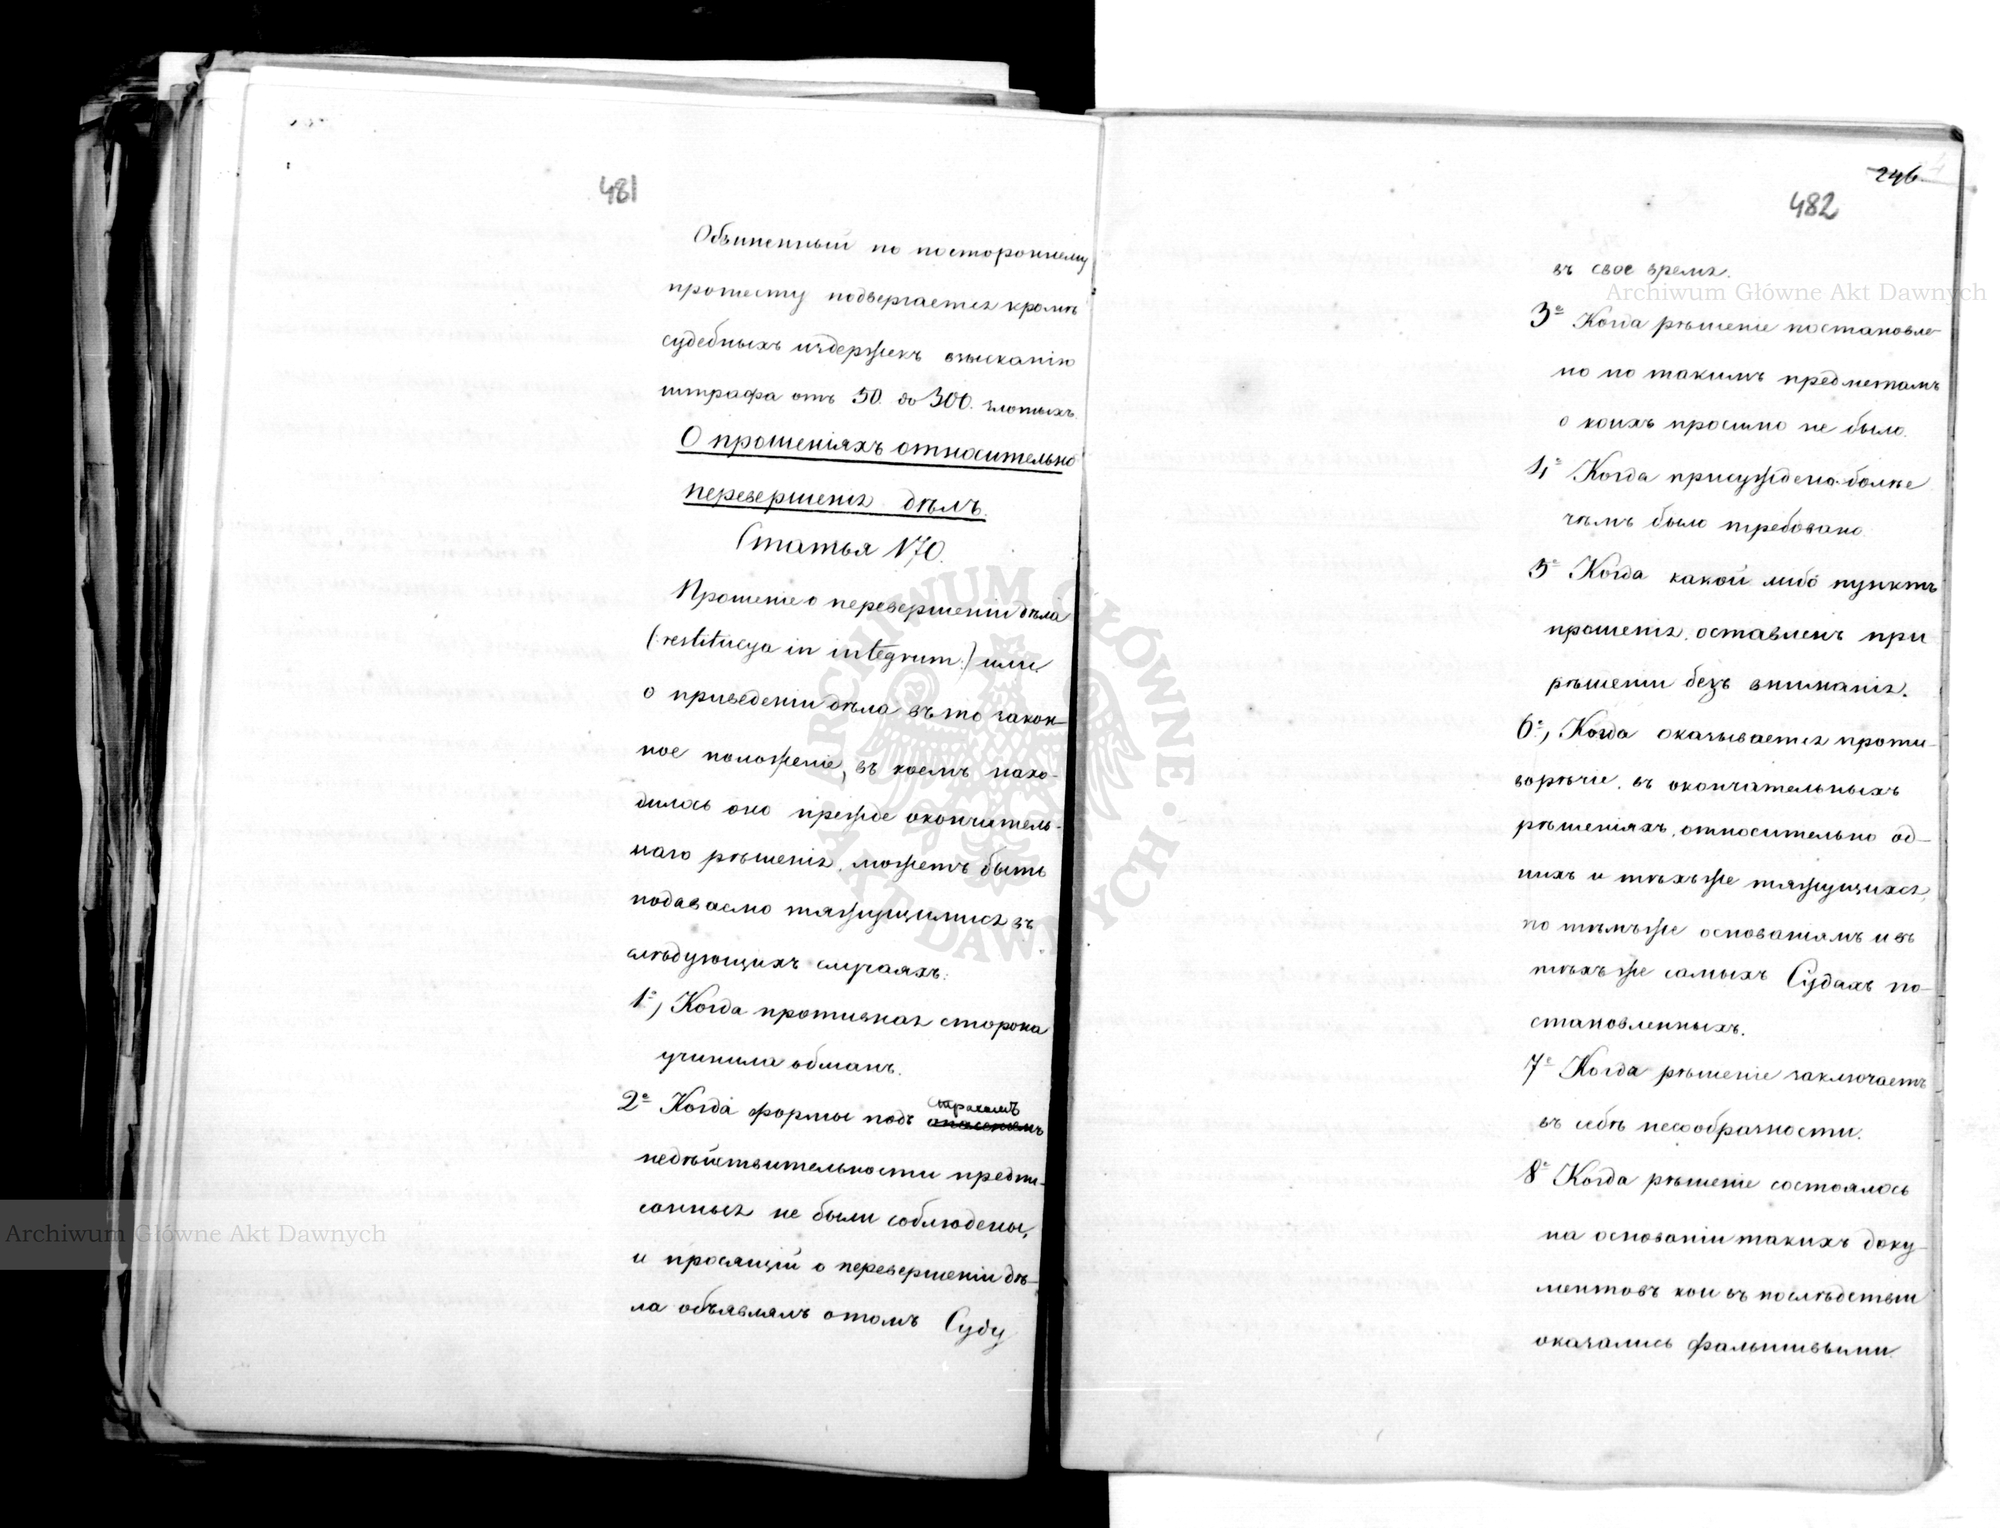 481
Обвиненный по постороннему
протесту подвергается кромѣ
судебныхъ издержекъ взысканію
штрафа отъ 50. до 300. злотыхъ.
О прошеніяхъ относительно
перевершенія дѣлъ.
Статья 170.
Прошеніе о перевершеніи дѣла
(:restitucya in integrum:) или
о приведеніи дѣла въ то закон-
ное положеніе, въ коемъ нахо-
дилось оно прежде окончитель-
наго рѣшенія, можетъ быть
подаваемо тяжущимися въ
слѣдующихъ случаяхъ:
1е, Когда противная сторона
учинила обманъ.
2е Когда формы подъ страхомъ
недѣйствительности предпи-
санныя не были соблюдены,
и просящій о перевершеніи дѣ-
ла объявлялъ о томъ Суду
246
482
въ свое время.
3е Когда рѣшеніе постановле-
но по такимъ предметамъ
о коихъ просимо не было.
4е Когда присуждено болѣе
чѣмъ было требовано.
5е Когда какой либо пунктъ
прошенія, оставленъ при
рѣшеніи безъ вниманія.
6е, Когда оказывается проти-
ворѣчіе, въ окончательныхъ
рѣшеніяхъ, относительно од-
нихъ и тѣхъ же тяжущихся,
по тѣмъ же основаніямъ и въ
тѣхъ же самыхъ Судахъ по-
становленныхъ.
7е Когда рѣшеніе заключаетъ
въ себѣ несообразности.
8е Когда рѣшеніе состоялось
на основаніи такихъ доку-
ментовъ кои въ послѣдствіи
оказались фальшивыми.
Archiwum Główne Akt Dawnych
Archiwum Główne Akt Dawnych
ARCHIWUM GŁÓWNE · AKT DAWNYCH ·